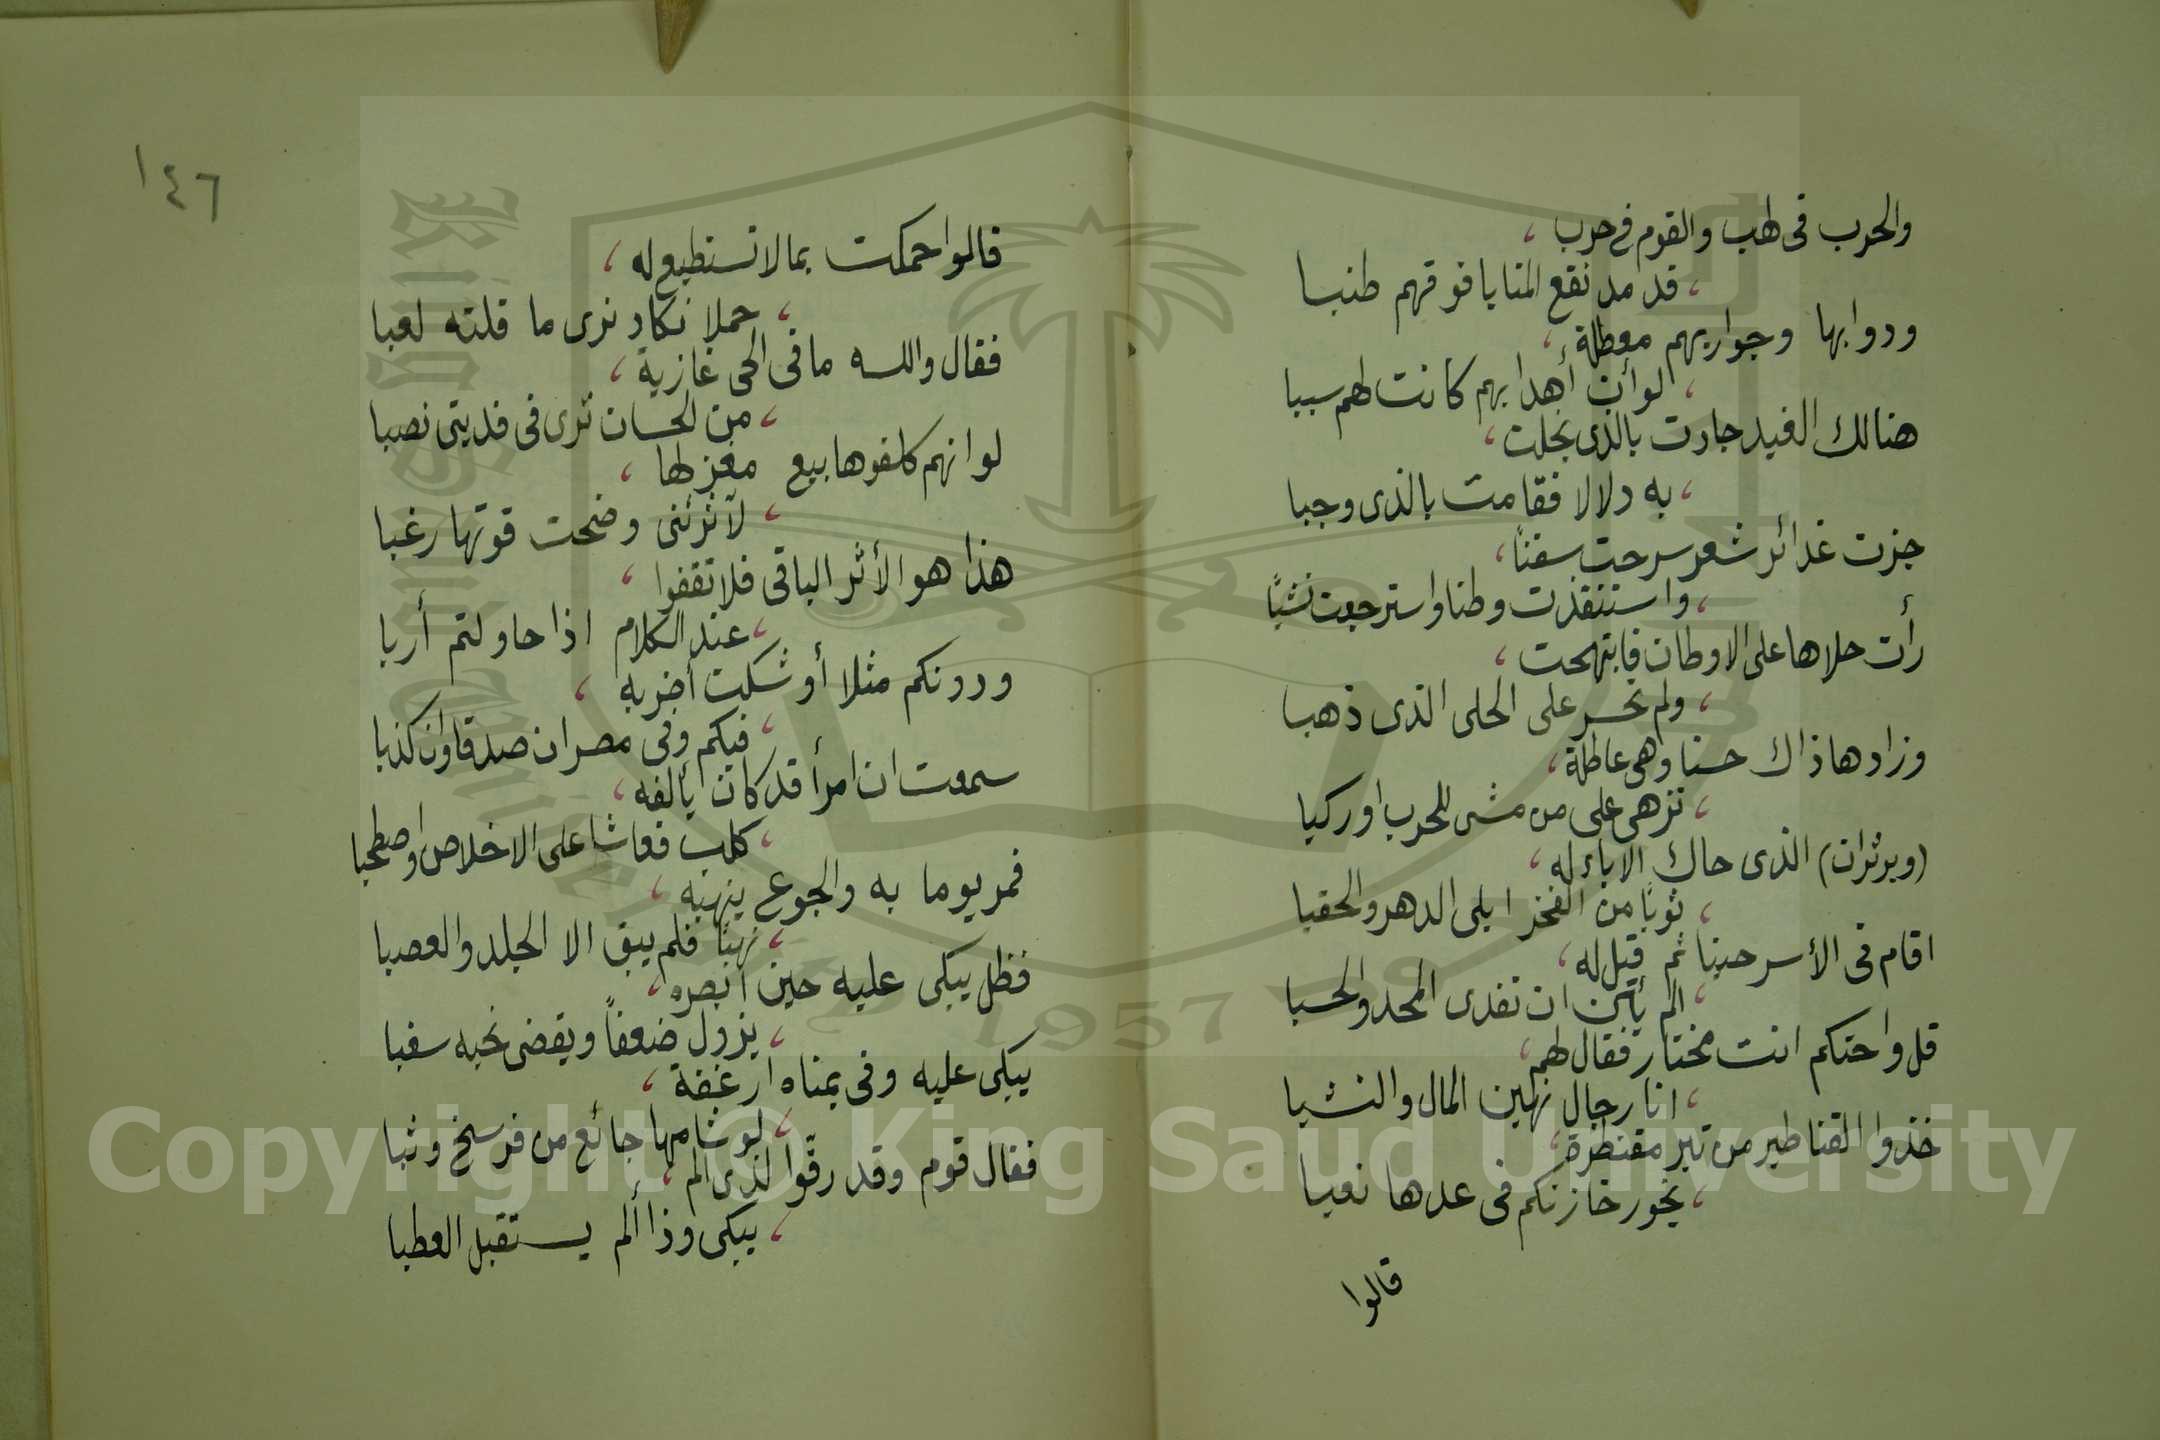 والحرب فى لهب والقوم فى حرب ،
، قد مد نقع المنايا فوقهم طنبا
ودوابها وجواريهم معطلة ،
، لو أن أهدابهم كانت لهم سببا
هنالك الغيد جادت بالذى بخلت ،
، به دلالا فقامت بالذى وجبا
جزت غدائر شعر سرحت سفنًا ،
، واستنقذت وطنا واسترجعت نشبًا
رأت حلاها على الاوطان فابتهجت ،
، ولم تحسر على الحلى الذى ذهبا
وزادها ذاك حسنا وهى عاطلة ،
، تزهى على من مشى للحرب اوركبا
(وبرثران) الذى حاك الاباء له ،
، ثوبًا من الفخر ابلى الدهر والحقبا
اقام فى الأسر حينا ثم قيل له ،
، الم يئن ان تفدى المجد والحسبا
قل واحتكم انت مختار فقال لهم ،
، انا رجال نهين المال والنشبا
خذوا القناطير من تبر مقنطرة ،
، يخور خازنكم فى عدها تعبا
قالوا
١٤٦
قالوا حكمت بما لا تستطيع له ،
، حملا نكاد نرى ما قلته لعبا
فقال والله ما فى الحى غازية ،
، من الحسان ترى فى فديتى نصبا
لو انهم كلفوها بيع مغزلها ،
، لآثرتنى وضحت قوتها رغبا
هذا هو الأثر الباقى فلا تقفوا ،
، عند الكلام اذا حاولتم أربا
ودونكم مثلا أوشكت أضربه ،
، فيكم وفى مصر ان صدقا وان كذبا
سمعت ان امرأ قد كان يألفه ،
، كلب فعاشا على الاخلاص واصطحبا
فمر يوما به والجوع ينهبه ،
، نهبًا فلم يبق الا الجلد والعصبا
فظل يبكى عليه حين ابصره ،
، يزول ضعفًا ويقضى نحبه سغبا
يبكى عليه وفى يمناه ارغفة ،
، لو شامها جائع من فرسخ وثبا
فقال قوم وقد رقوا لذى الم ،
، يبكى وذا ألم يستقبل العطبا
Copyright © King Saud University
1957